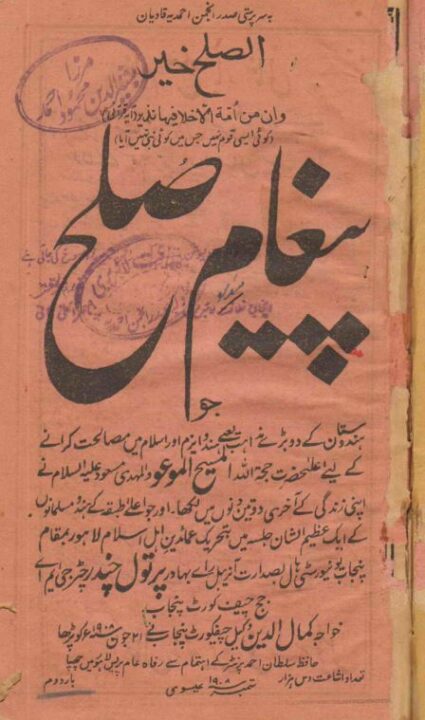 بہ سرپرستی صدر انجمن احمدیہ قادیان
الصلح خیر
مرزا بشیر الدین محمود احمد
وان من امۃ الا خلا فیہا نذیر
(کوئی ایسی قوم نہیں جس میں کوئی نبی نہیں آیا)
پیغام صلح
جو
ہندوستان کے دو بڑے مذاہب یعنے ہندوایزم اور اسلام میں مصالحت کرانے
کے لیئے اعلیحضرت حجۃ اللہ المسیح الموعود والمہدی مسعود علیہ السلام نے
اپنی زندگی کے آخری دو تین دنوں میں لکھا۔ اور جو اعلے طبقہ کے ہندو مسلمانوں
کے ایک عظیم الشان جلسہ میں بتحریک عمائدین اہل اسلام لاہور بمقام
پنجاب یونیورسٹی ہال بصدارت آنریبل رائے بہادر پرتول چندر چٹرجی ایم اے
جج چیف کورٹ پنجاب
خواجہ کمال الدین وکیل چیفکورٹ پنجاب نے ۲۱ جون ۱۹۰۸ء کو پڑھا
حافظ سلطان احمد پرنٹر کے اہتمام سے رفاہ عام پریس لاہور میں چھپا
تعداد اشاعت دس ہزار ستمبر ۱۹۰۸ عیسوی بار دوم